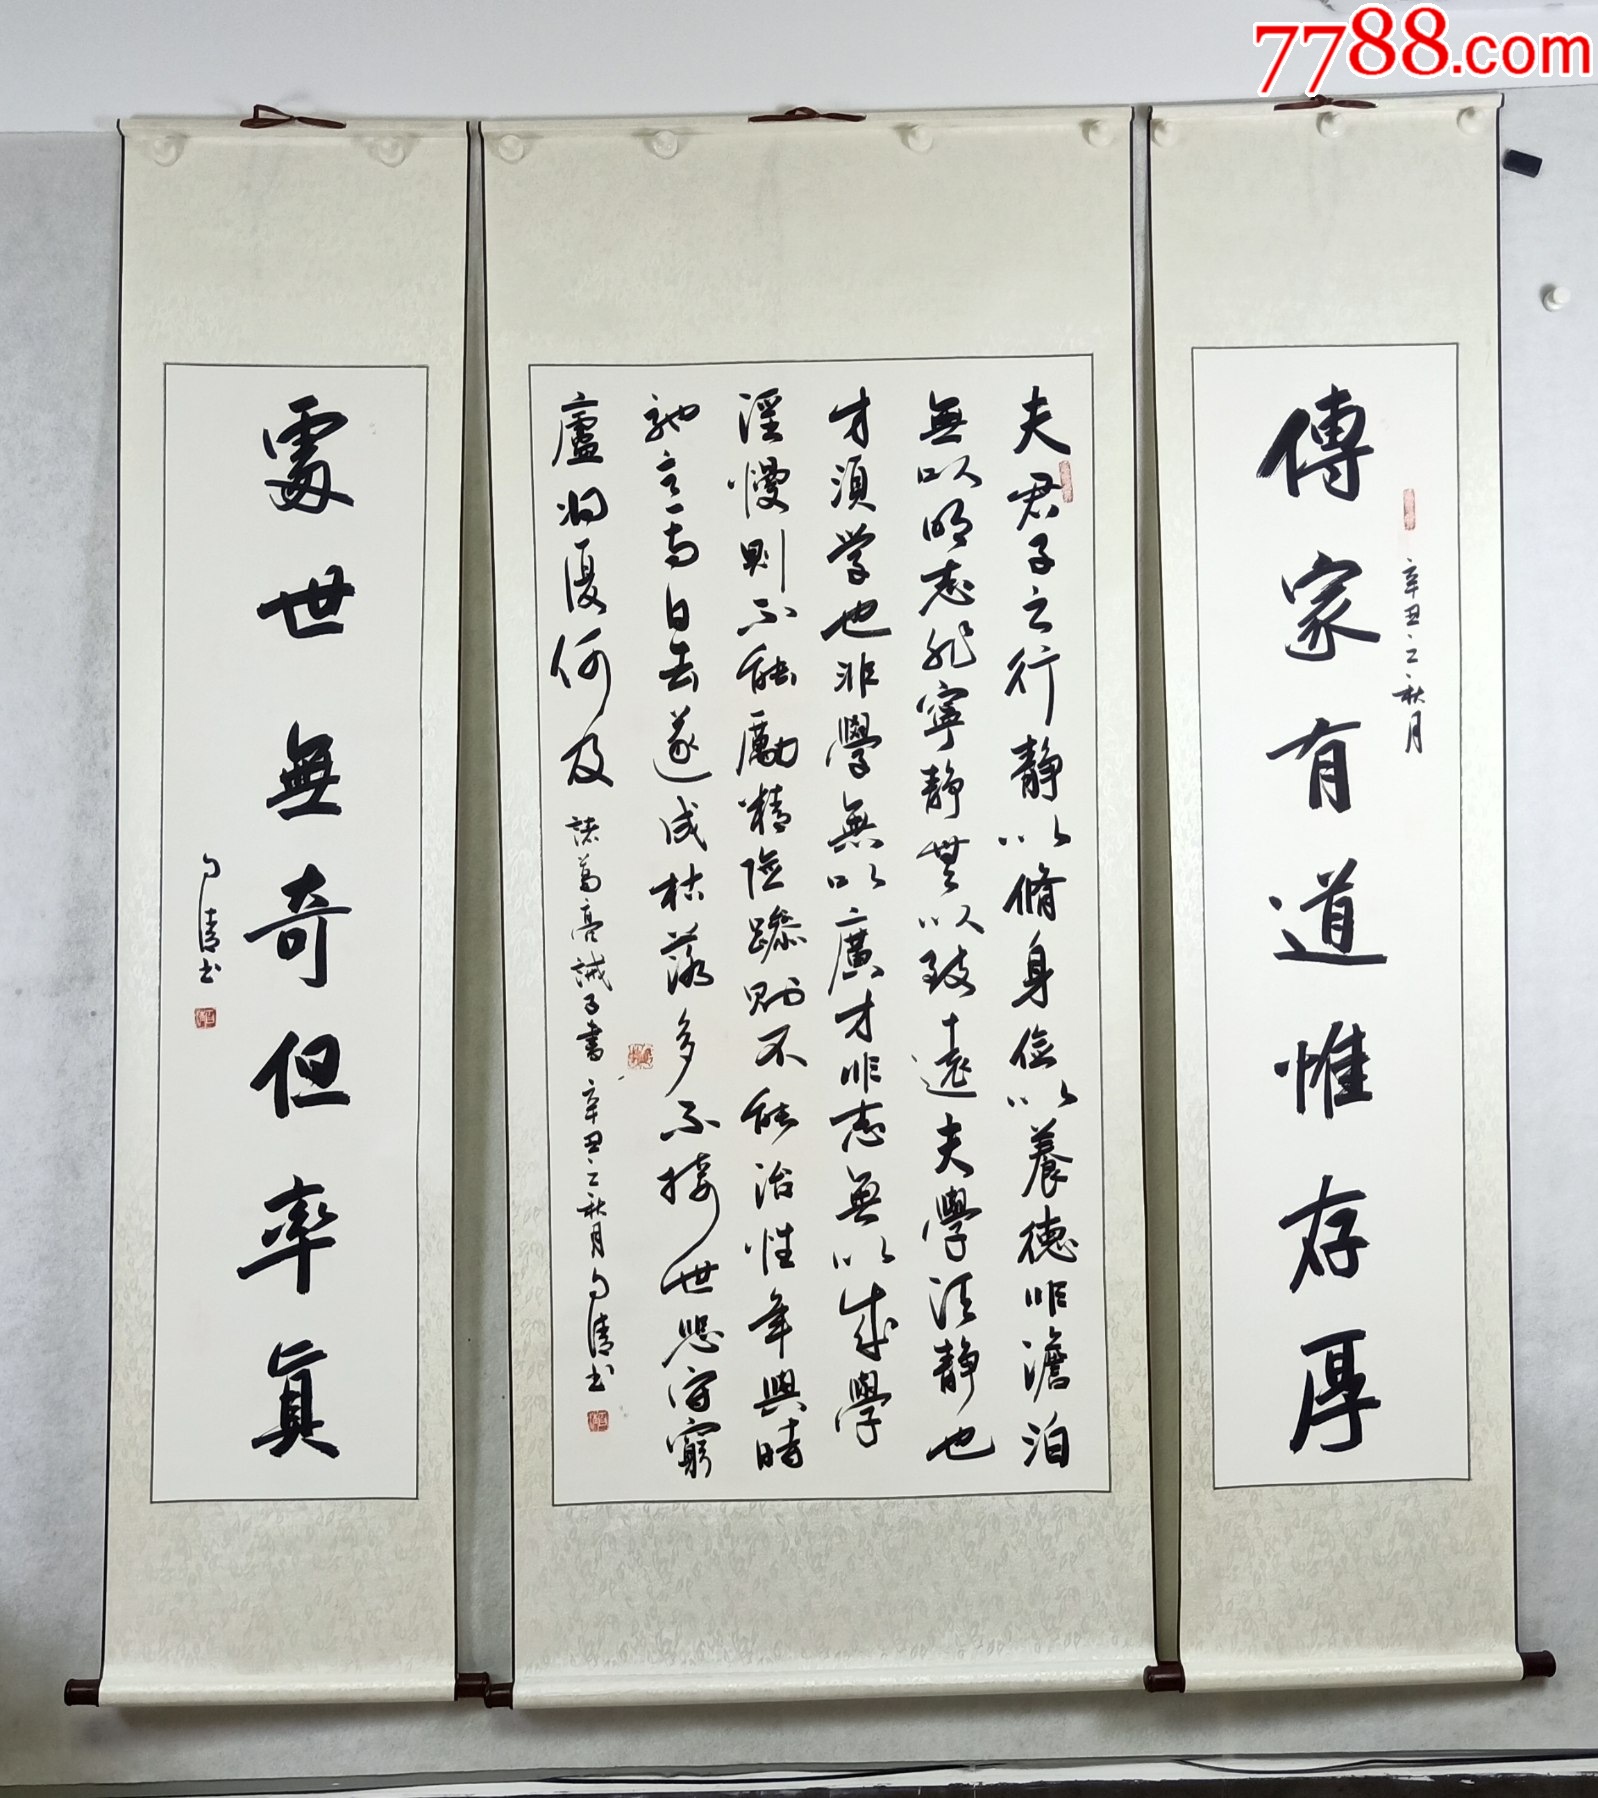 7788.com
傳家有道惟存厚
辛丑之秋月
夫君子之行静以脩身儉以養德非澹泊
無以明志非寧静無以致遠夫學須静也
才須学也非學無以廣才非志無以成學
淫慢則不能勵精險躁則不能治性年與時
馳意与日去遂成枯落多不接世悲守窮
廬将復何及
諸葛亮誡子書 辛丑之秋月 清书
處世無奇但率真
清书